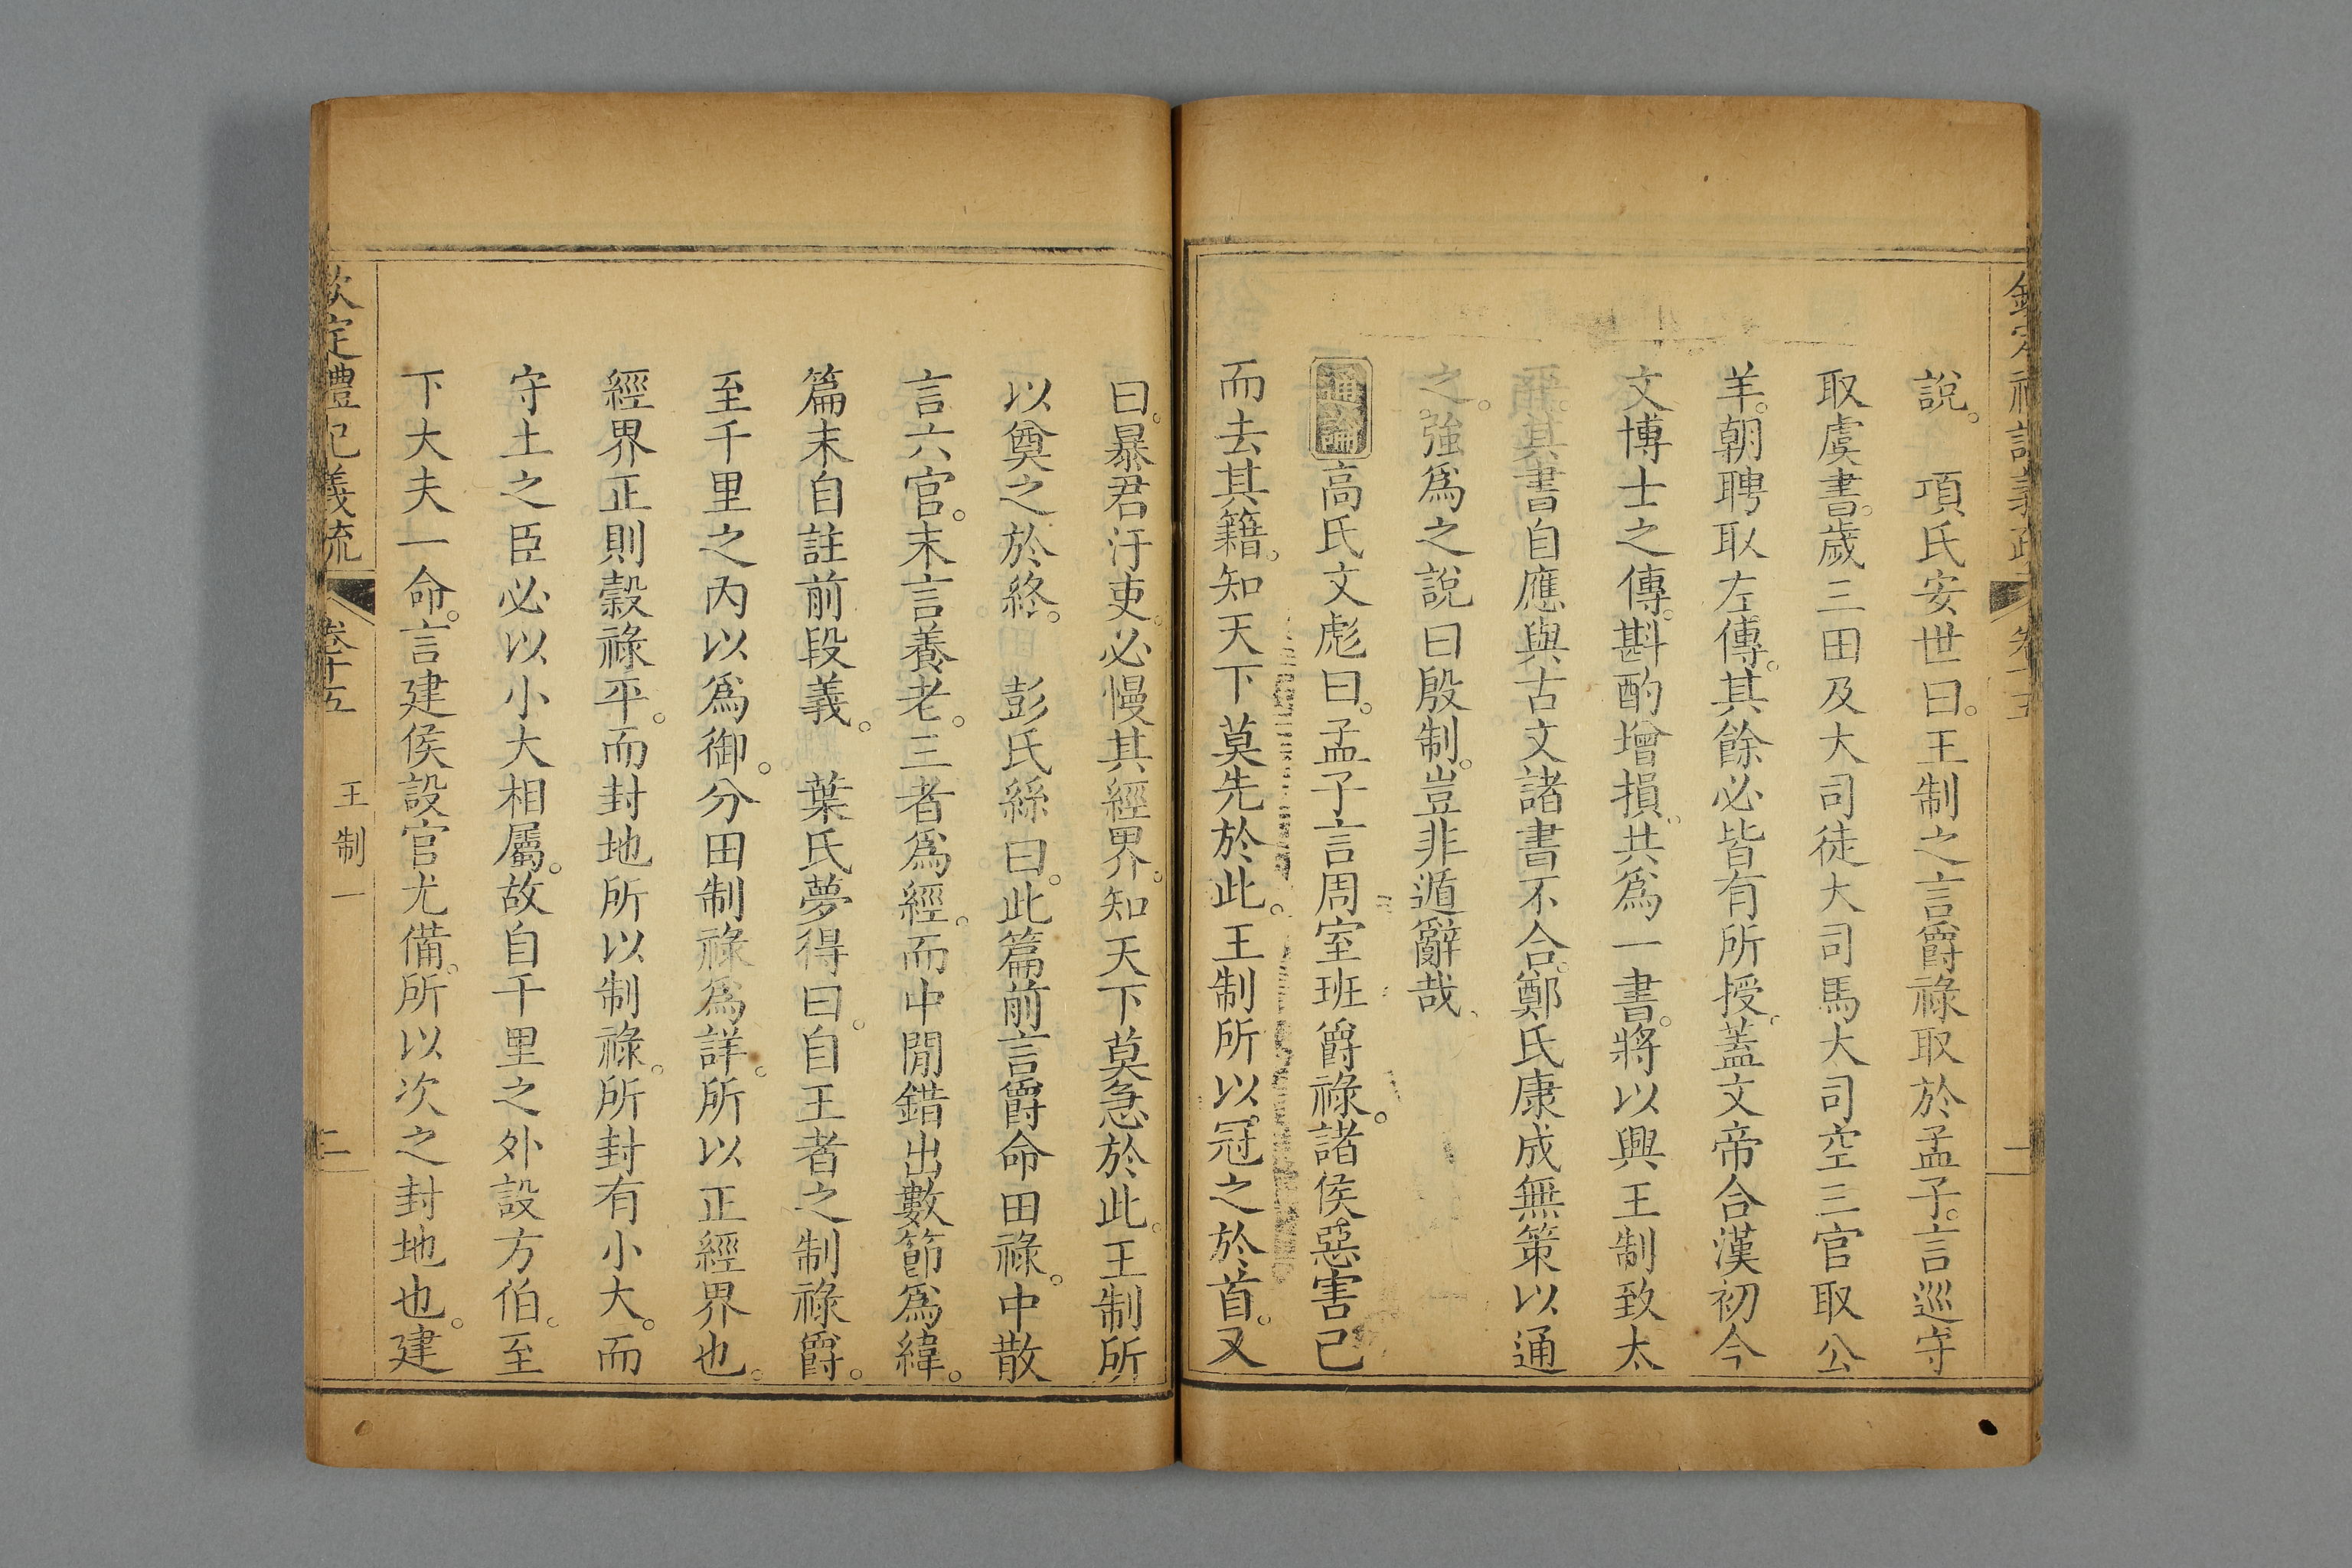 說。　項氏安世曰。王制之言爵祿取於孟子。言巡守
取虞書。歲三田及大司徒大司馬大司空三官取公
羊。朝聘取左傳。其餘必皆有所授。蓋文帝合漢初今
文博士之傳。斟酌增損。共爲一書。將以興王制致太
其書自應與古文諸書不合。鄭氏康成無策以通
之。強爲之說曰殷制。豈非遁辭哉。
通論高氏文彪曰。孟子言周室班爵祿。諸侯惡害己
而去其籍。知天下莫先於此。王制所以冠之於首。又
曰。暴君汙吏。必慢其經界。知天下莫急於此。王制所
以奠之於終。　彭氏絲曰。此篇前言爵命田祿。中散
言六官。末言養老。三者爲經。而中閒錯出數節爲緯。
篇末自註前段義。　葉氏夢得曰。自王者之制祿爵。
至千里之內以爲御。分田制祿爲詳。所以正經界也。
經界正則穀祿平。而封地所以制祿。所封有小大。而
守土之臣必以小大相屬。故自千里之外設方伯。至
下大夫一命。言建侯設官尤備。所以次之封地也。建
欽定禮記義疏　卷十五　王制一　二